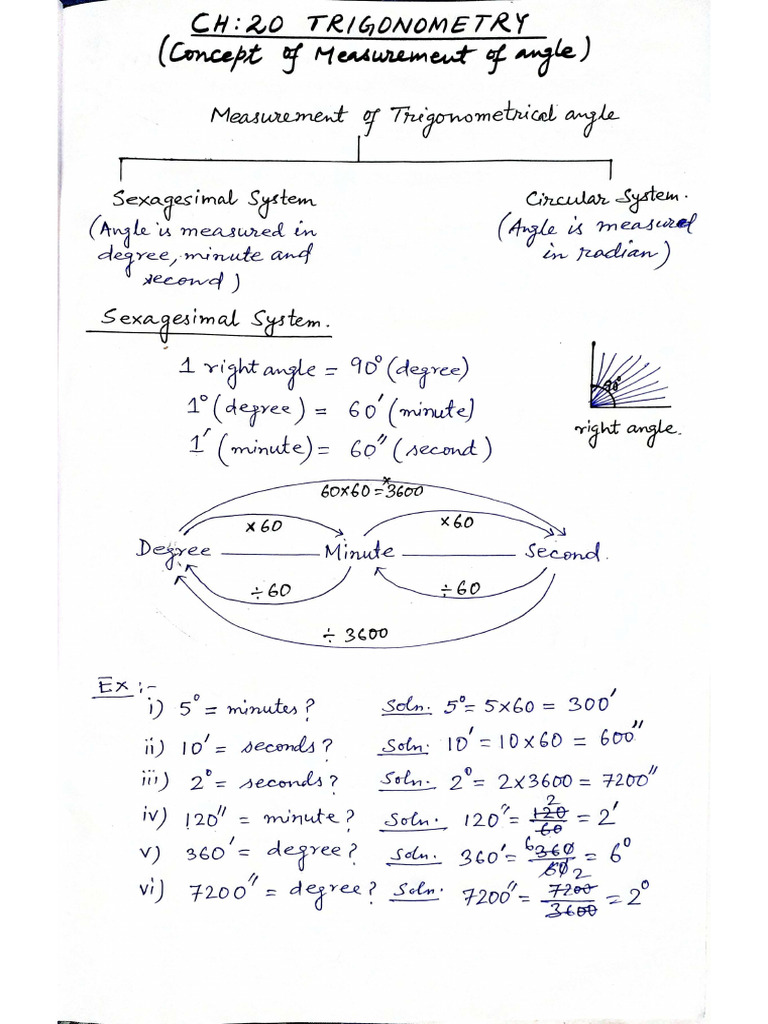 CH:20 TRIGONOMETRY
(Concept of Measurement of angle)
Measurement of Trigonometrical angle
Sexagesimal System
(Angle is measured in
degree, minute and
second)
Circular System.
(Angle is measured
in radian)
Sexagesimal System.
1 right angle = 90° (degree)
1° (degree) = 60′ (minute)
1′ (minute) = 60″ (second)
90°
right angle.
60×60=3600
×60
×60
Degree Minute Second.
÷60
÷60
÷ 3600
Ex:-
i) 5° = minutes? Soln. 5° = 5×60 = 300′
ii) 10′ = seconds? Soln. 10′ = 10×60 = 600″
iii) 2° = seconds? Soln. 2° = 2×3600 = 7200″
iv) 120″ = minute? Soln. 120″ = 2 120/60 = 2′
v) 360′ = degree? Soln. 360′ = 6 360/60 = 6°
vi) 7200″ = degree? Soln. 7200″ = 2 7200/3600 = 2°